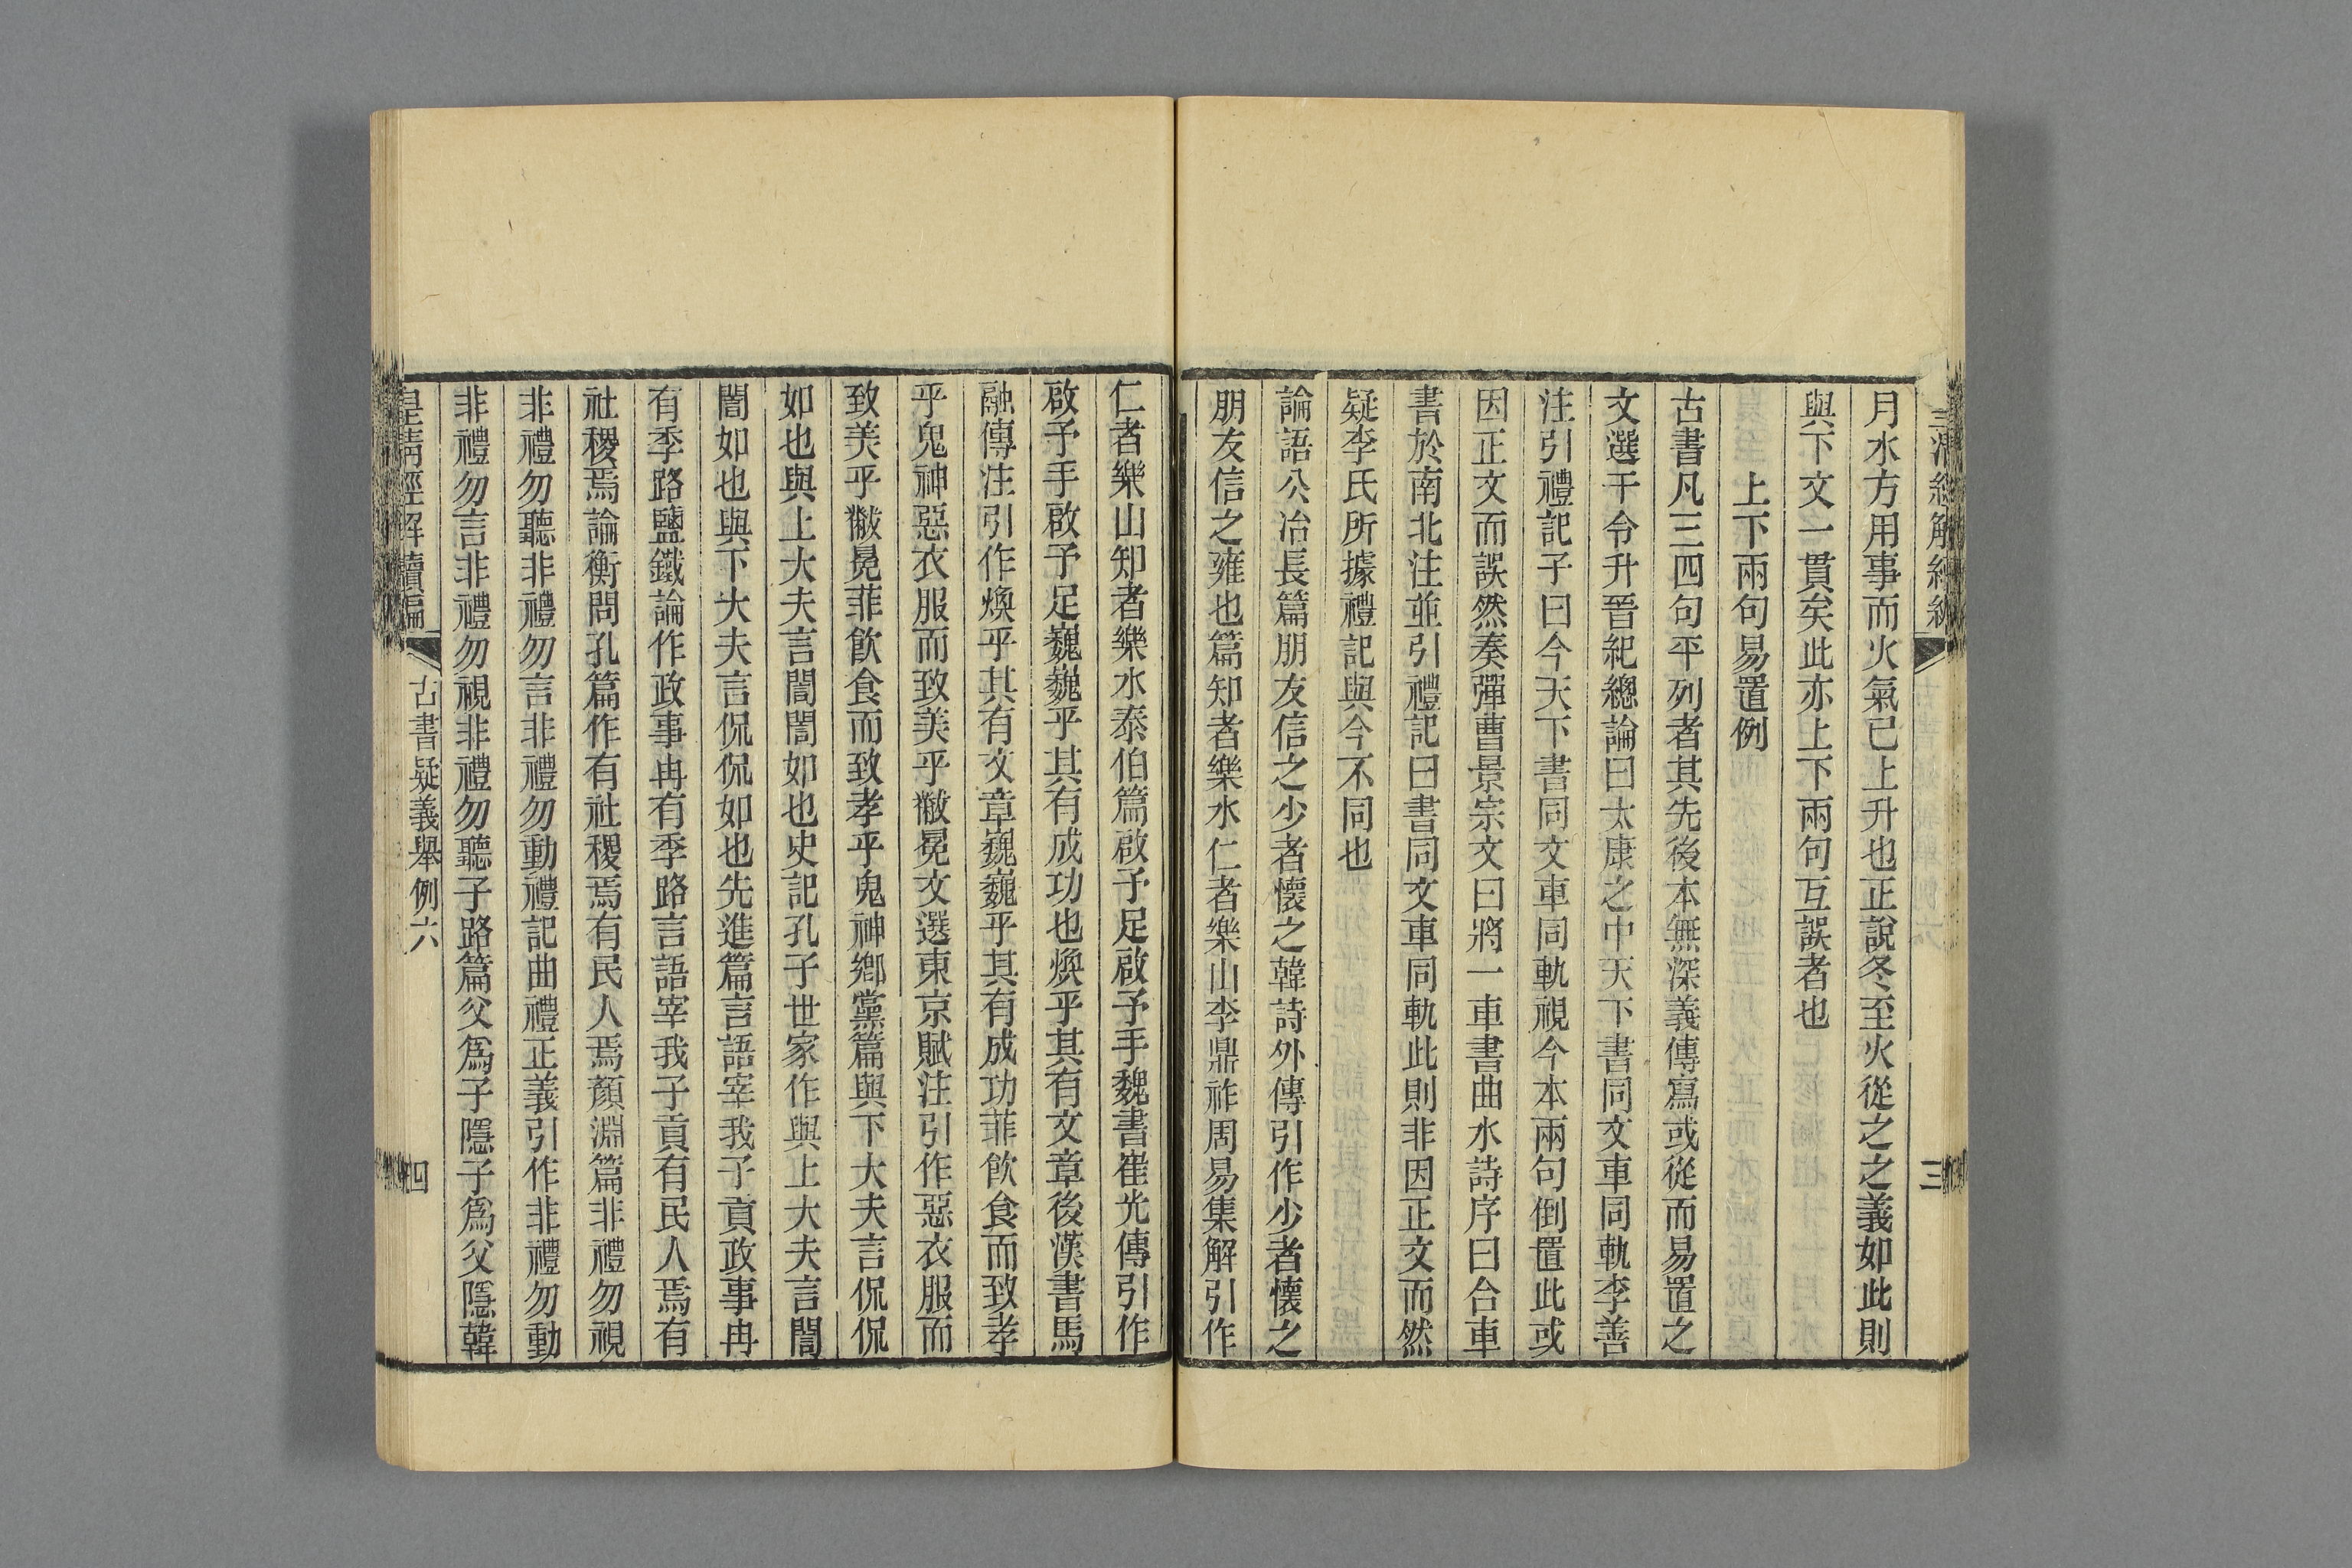 月水方用事而火氣已上升也正說冬至火從之之義如此則
與下文一貫矣此亦上下兩句互誤者也
上下兩句易置例
古書凡三四句平列者其先後本無深義傳寫或從而易置之
文選干令升晉紀總論曰太康之中天下書同文車同軌李善
注引禮記子曰今天下書同文車同軌視今本兩句倒置此或
因正文而誤然奏彈曹景宗文曰將一車書曲水詩序曰合車
書於南北注並引禮記曰書同文車同軌此則非因正文而然
疑李氏所據禮記與今不同也
論語公冶長篇朋友信之少者懷之韓詩外傳引作少者懷之
朋友信之雍也篇知者樂水仁者樂山李鼎祚周易集解引作
仁者樂山知者樂水泰伯篇啟予足啟予手魏書崔光傳引作
啟予手啟予足巍巍乎其有成功也煥乎其有文章後漢書馬
融傳注引作煥乎其有文章巍巍乎其有成功菲飲食而致孝
乎鬼神惡衣服而致美乎黻冕文選東京賦注引作惡衣服而
致美乎黻冕菲飲食而致孝乎鬼神鄉黨篇與下大夫言侃侃
如也與上大夫言誾誾如也史記孔子世家作與上大夫言誾
誾如也與下大夫言侃侃如也先進篇言語宰我子貢政事冉
有季路鹽鐵論作政事冉有季路言語宰我子貢有民人焉有
社稷焉論衡問孔篇作有社稷焉有民人焉顏淵篇非禮勿視
非禮勿聽非禮勿言非禮勿動禮記曲禮正義引作非禮勿動
非禮勿言非禮勿視非禮勿聽子路篇父爲子隱子爲父隱韓
皇清經解續編
古書疑義舉例六
四
三